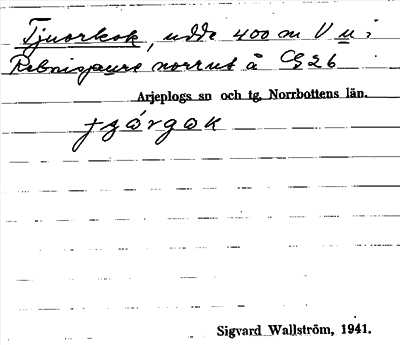 Tjuorkok, udde 400 m V u i
Rebnisjaure norrut å CS 26
Arjeplogs sn och tg, Norrbottens län.
Sigvard Wallström, 1941.